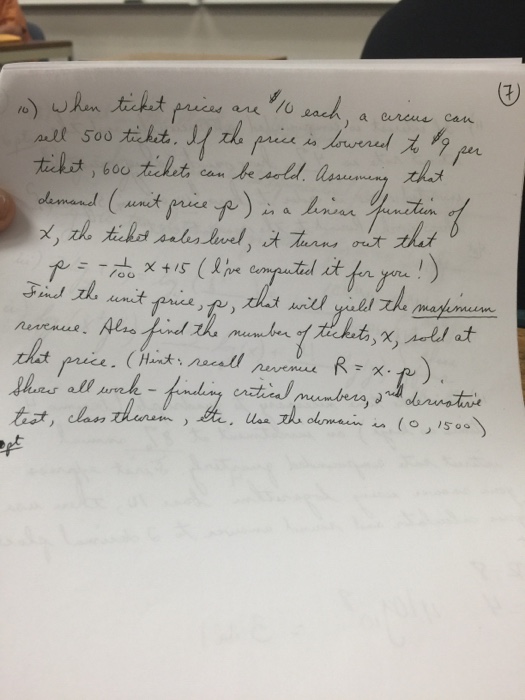 (7)
10) When ticket prices are $10 each, a circus can
sell 500 tickets. If the price is lowered to $9 per
ticket, 600 tickets can be sold. Assuming that
demand (unit price p) is a linear function of
x, the ticket sales level, it turns out that
p = -1/100 x + 15 (I've computed it for you!)
Find the unit price, p, that will yield the maximum
revenue. Also find the number of tickets, x, sold at
that price. (Hint: recall revenue R = x·p).
Show all work - finding critical numbers, 2nd derivative
test, class theorem, etc. Use the domain is (0, 1500)